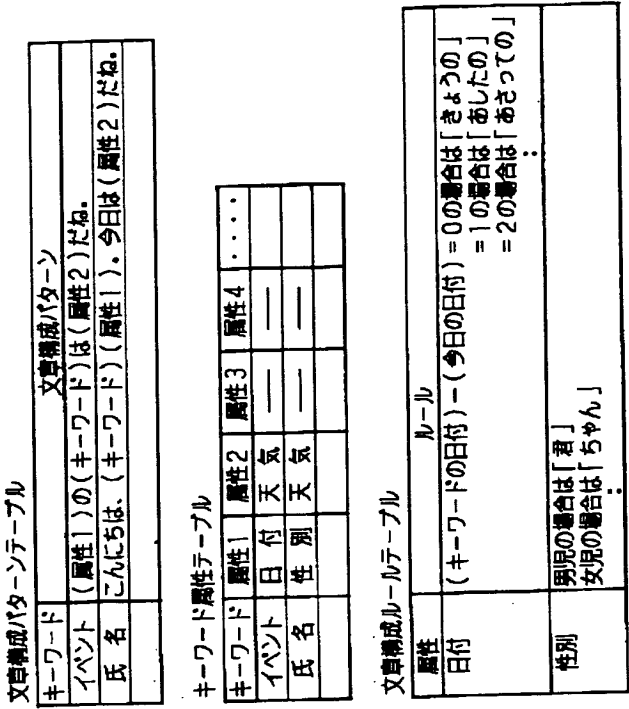 文章構成パターンテーブル
キーワード 文章構成パターン
イベント (属性1)の(キーワード)は(属性2)だね。
氏名 こんにちは、(キーワード)(属性1)。今日は(属性2)だね。
キーワード属性テーブル
キーワード 属性1 属性2 属性3 属性4 ‥‥
イベント 日付 天気 ― ―
氏名 性別 天気 ― ―
文章構成ルールテーブル
属性 ルール
日付 (キーワードの日付)-(今日の日付)=0の場合は「きょうの」
=1の場合は「あしたの」
=2の場合は「あさっての」
:
性別 男児の場合は「君」
女児の場合は「ちゃん」
: